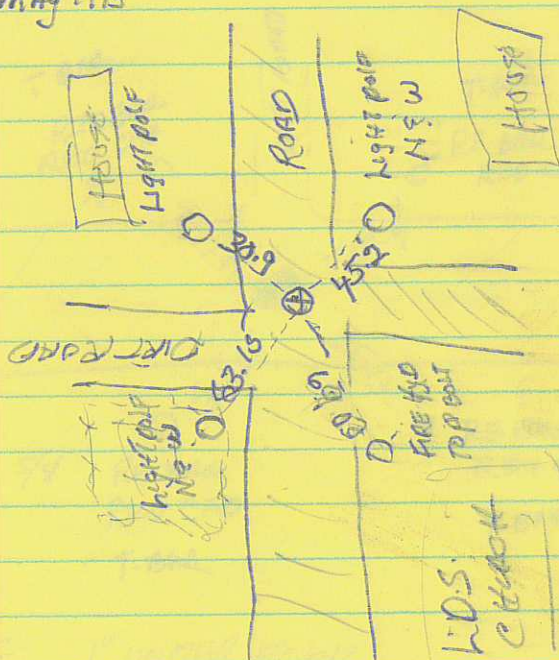 HOUSE
LIGHT POLE
ROAD
LIGHT POLE
N & W
HOUSE
30.9
45.2
DIRT ROAD
53.15
LIGHT POLE
N & W
FIRE HYD
TOP BOLT
L.D.S.
CHURCH